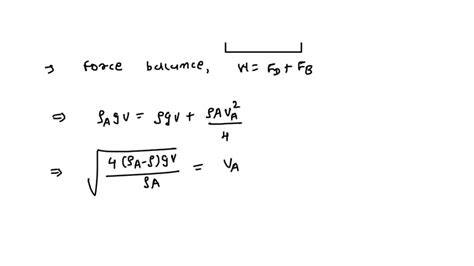 → force balance, W = F_D + F_B
⇒ ρ_A gV = ρgV + ρAV_A²/4
⇒ √(4(ρ_A-ρ)gV/ρA) = V_A